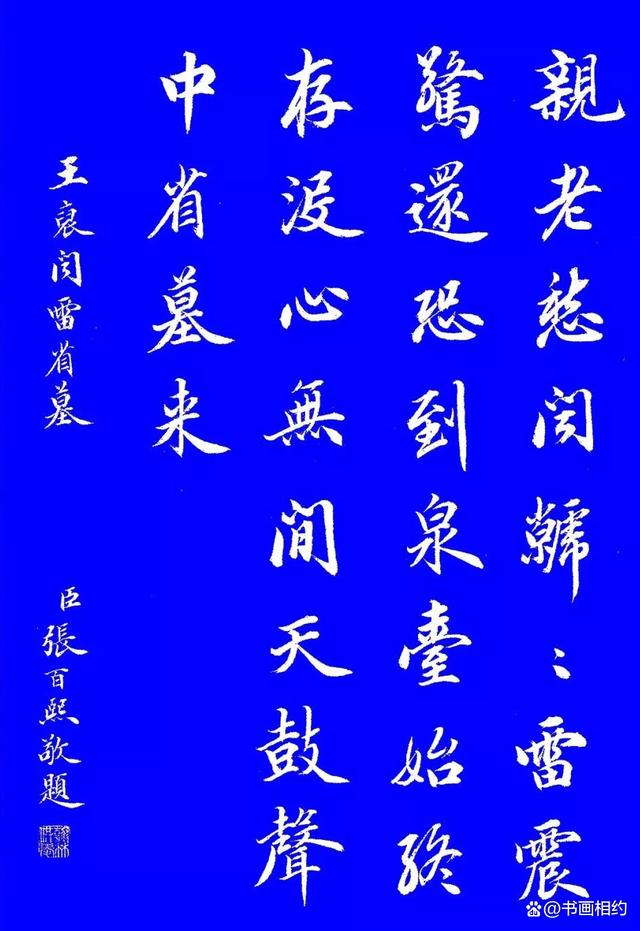 親老愁闻虩〻雷震
驚還恐到泉臺始終
存没心無間天鼓聲
中省墓来
王裒闻雷省墓
臣張百熙敬題
@书画相约